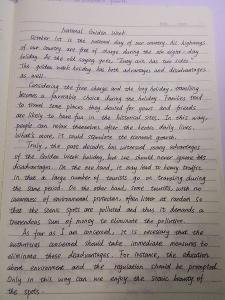 National Golden Week
October 1st is the national day of our country. All highways
of our country are free of charge during the
holiday. As the old saying goes, "Every coin has two sides".
The golden week holiday has both advantages and disadvantages
as well.
Considering the free charge and the long holiday, travelling
becomes a favorable choice during the holiday. Families tend
to travel some places they desired for years and friends
are likely to have fun in the historical sites. In this way,
people can relax themselves after the hectic daily lives.
What's more, it could stimulate the economic growth.
Truly, the past decades has witnessed many advantages
of the Golden Week holiday, but we should never ignore its
disadvantages. On the one hand, it may lead to heavy traffic
in that a large number of tourists go on traveling during
the same period. On the other hand, some tourists, with no
awareness of environmental protection, often litter at random so
that the scenic spots are polluted and thus it demands a
tremendous sum of money to eliminate the pollution.
As far as I am concerned, it is necessary that the
authorities concerned should take immediate measures to
eliminate these disadvantages. For instance, the education
about environment and the regulation should be prompted.
Only in this way can we enjoy the scenic beauty of
the spots.